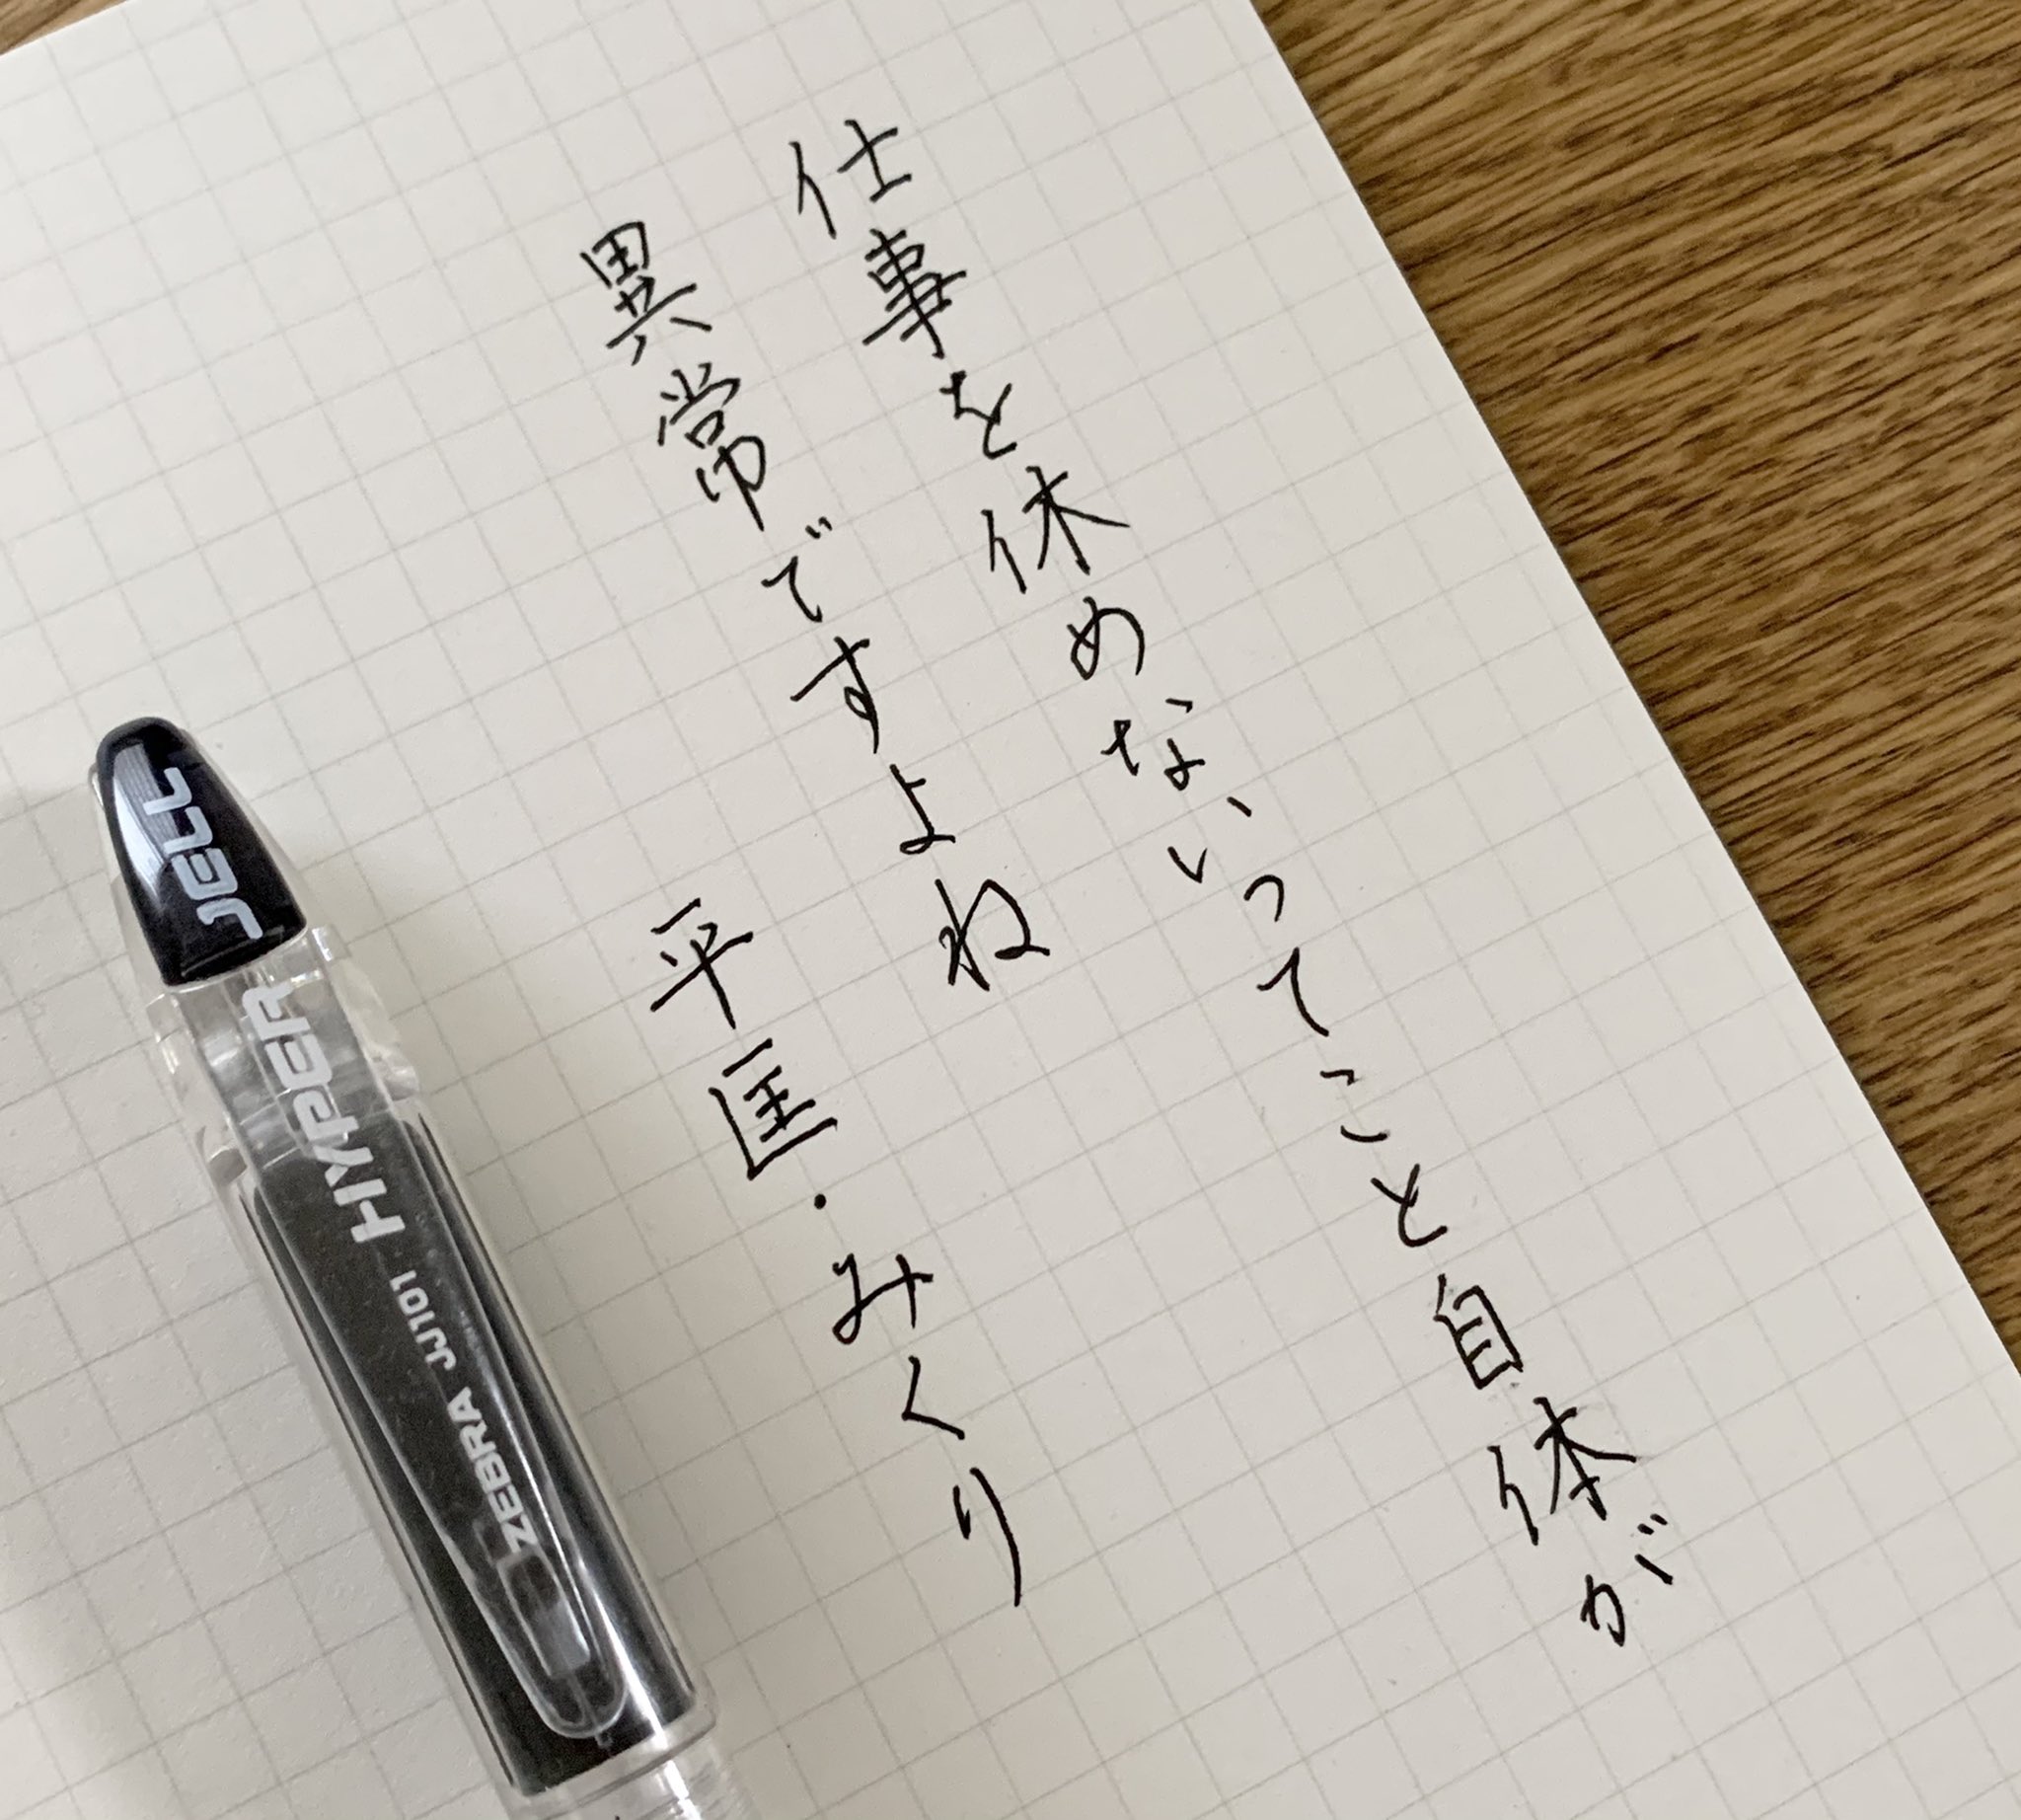 仕事を休めないってこと自体が
異常ですよね
平匡・みくり
JELL
HYPER
ZEBRA JJ101